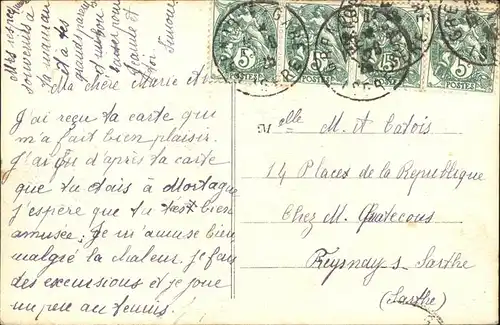 Mes respec
souvenirs à
ta maman
et à tes
grands parents
un bon
baiser pour
Jeanne et
toi Simone
Ma chère Marie et
J'ai reçu ta carte qui
m'a fait bien plaisir.
J'ai su d'après ta carte
que tu étais à Mortagne
j'espère que tu t'es bien
amusée; Je m'amuse bien
malgré la chaleur. je fais
des excursions et je joue
un peu au tennis.
Melle M. et Catois
14 Places de la République
Chez M. Quatecous
Fresnay s Sarthe
(Sarthe)
5 5 5 5
POSTES POSTES POSTES